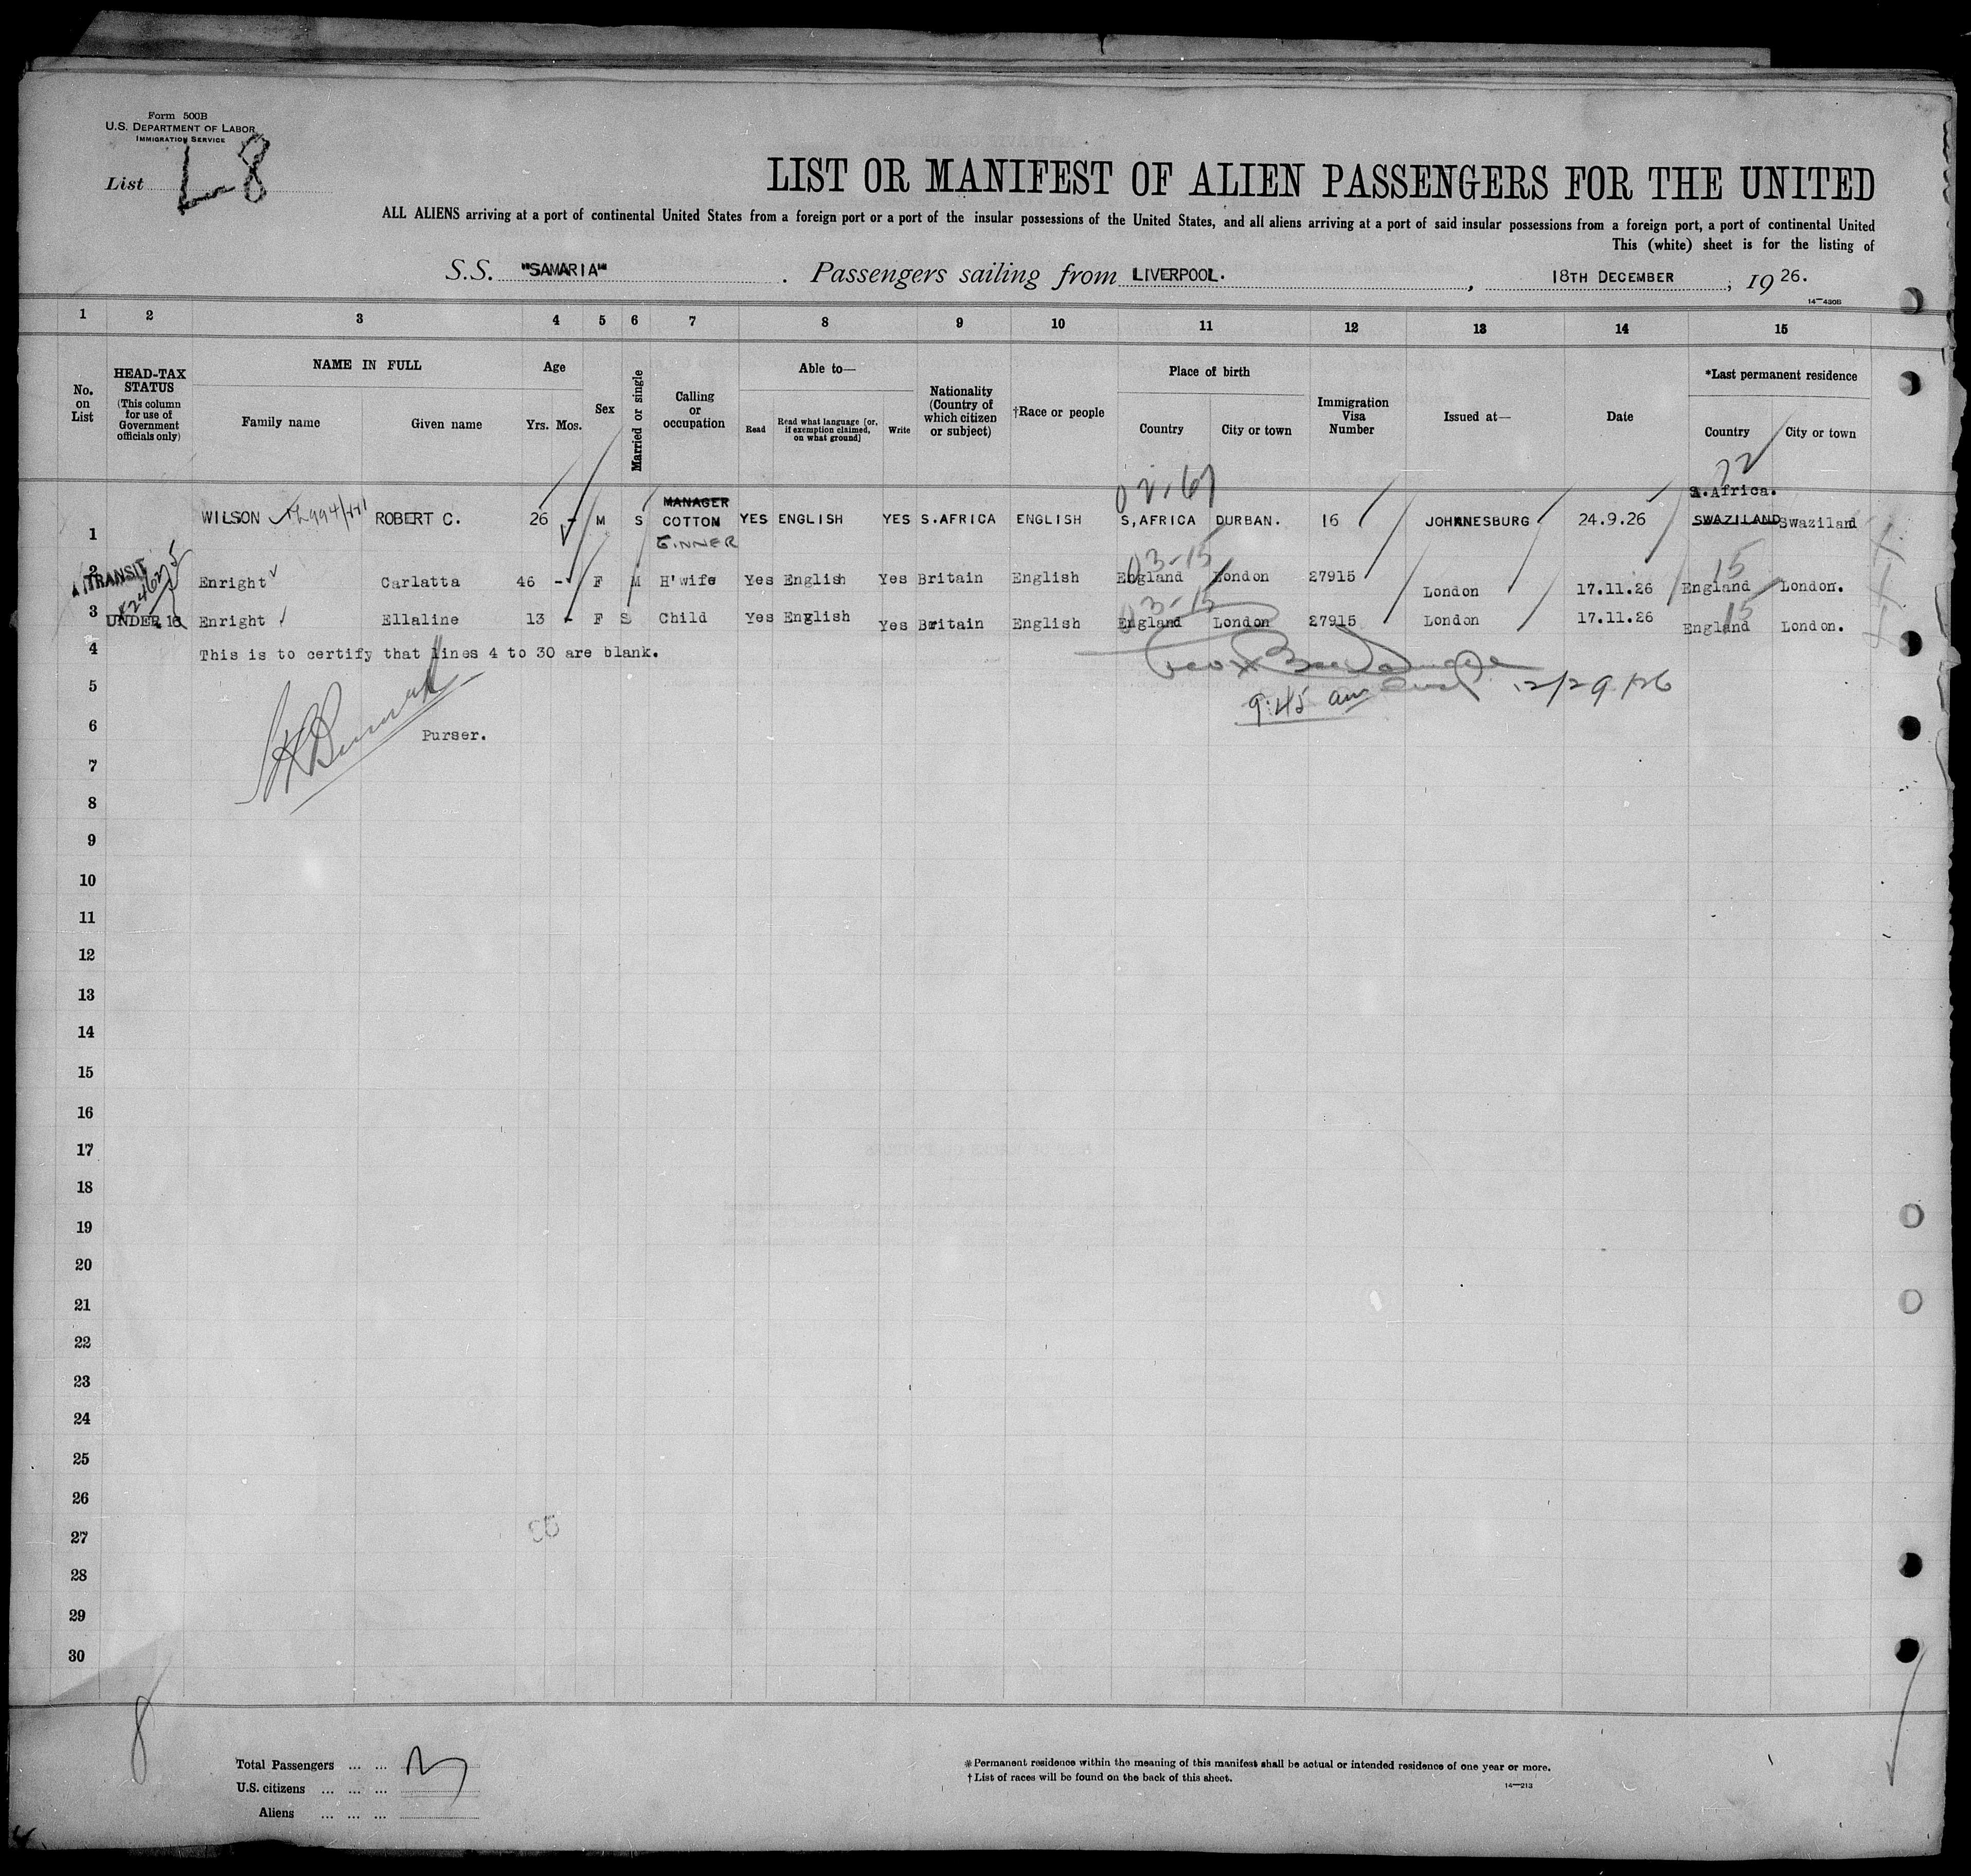 Form 500B
U.S. DEPARTMENT OF LABOR
IMMIGRATION SERVICE
List L-8
LIST OR MANIFEST OF ALIEN PASSENGERS FOR THE UNITED
ALL ALIENS arriving at a port of continental United States from a foreign port or a port of the insular possessions of the United States, and all aliens arriving at a port of said insular possessions from a foreign port, a port of continental United
This (white) sheet is for the listing of
S.S. "SAMARIA" . Passengers sailing from LIVERPOOL. , 18TH DECEMBER , 19 26.
14—430B
1 2 3 4 5 6 7 8 9 10 11 12 13 14 15
No. on List
HEAD-TAX STATUS (This column for use of Government officials only)
NAME IN FULL
Family name Given name
Age
Yrs. Mos.
Sex
Married or single
Calling or occupation
Able to—
Read Read what language [or, if exemption claimed, on what ground] Write
Nationality (Country of which citizen or subject)
†Race or people
Place of birth
Country City or town
Immigration Visa Number
Issued at—
Date
*Last permanent residence
Country City or town
22
02.61
MANAGER S.Africa.
1 WILSON ROBERT C. 26 - M S COTTON YES ENGLISH YES S.AFRICA ENGLISH S,AFRICA DURBAN. 16 JOHANESBURG 24.9.26 SWAZILAND Swaziland
GINNER
03-15 15
TRANSIT
2 Enright Carlatta 46 - F M H'wife Yes English Yes Britain English England London 27915 London 17.11.26 England London.
03-15 15
3 UNDER 16 Enright Ellaline 13 - F S Child Yes English Yes Britain English England London 27915 London 17.11.26 England London.
4 This is to certify that lines 4 to 30 are blank.
5
9.45 am 12/29/26
6 Purser.
7
8
9
10
11
12
13
14
15
16
17
18
19
20
21
22
23
24
25
26
27
28
29
30
8
Total Passengers ... ... 3
U.S. citizens ... ... ...
Aliens ... ... ...
*Permanent residence within the meaning of this manifest shall be actual or intended residence of one year or more.
†List of races will be found on the back of this sheet.
14—213